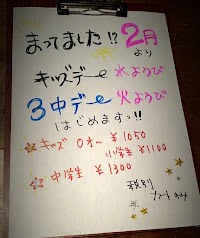 まってました!? 2月
より
キッズデー 水ようび
3中デー 火ようび
はじめますっ!!
☆キッズ 0才~ ¥1050
小学生 ¥1100
☆中学生 ¥1300
税別
カットのみ